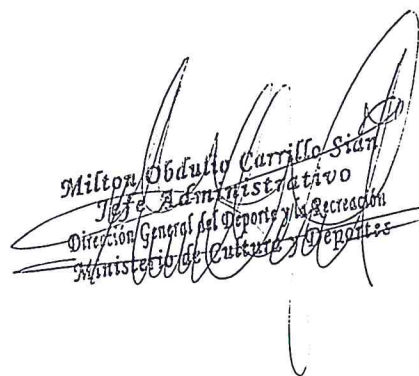 Milton Obdulio Carrillo Sián
Jefe Administrativo
Dirección General del Deporte y la Recreación
Ministerio de Cultura y Deportes